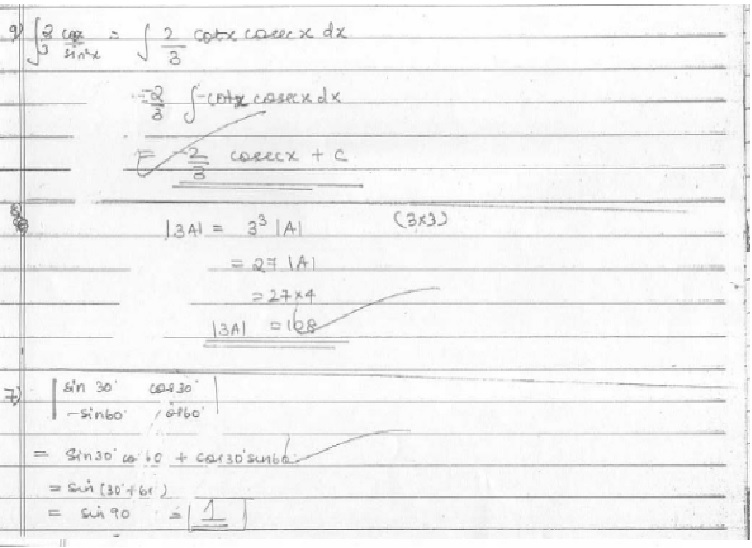 9) ∫ 2/3 cosx/sin²x = ∫ 2/3 cotx cosecx dx
= -2/3 ∫ -cotx cosecx dx
= -2/3 cosecx + C
|3A| = 3³ |A| (3x3)
= 27 |A|
= 27x4
|3A| = 108
7) | sin 30° cos30° |
| -sin60° cos60° |
= sin30° cos 60 + cos30° sin60
= sin (30+60)
= sin 90 = 1